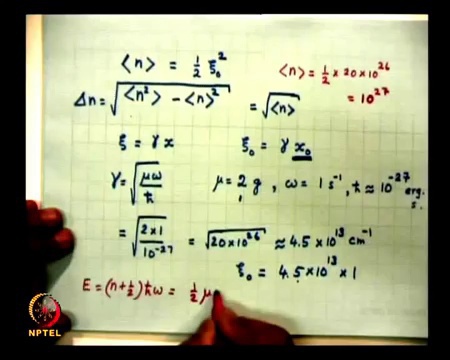 ⟨n⟩ = ½ ξ₀²
⟨n⟩ = ½ × 20 × 10²⁶
= 10²⁷
Δn = √(⟨n²⟩ − ⟨n⟩²) = √⟨n⟩
ξ = γ x    ξ₀ = γ x₀
γ = √(μω/ħ)    μ = 2 g, ω = 1 s⁻¹, ħ ≈ 10⁻²⁷ erg.s.
= √(2 × 1/10⁻²⁷) = √(20×10²⁶) ≈ 4.5 × 10¹³ cm⁻¹
ξ₀ = 4.5 × 10¹³ × 1
E = (n + ½) ħω = ½ μ
NPTEL